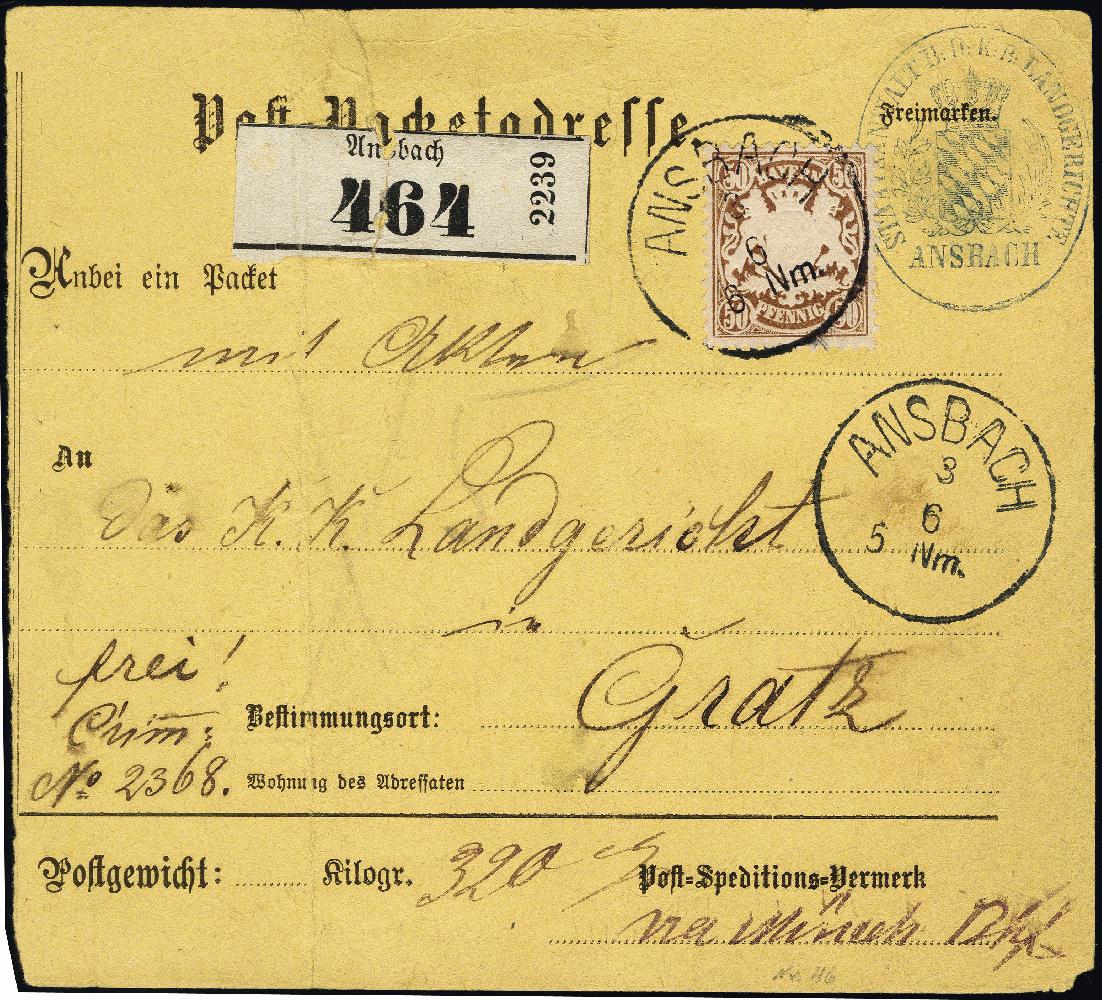 Post-Packetadresse.
Freimarken.
STAATSANWALT B. D. K. B. LANDGERICHTE
ANSBACH
Ansbach
464
2239
ANSBACH
6
6 Nm.
50 50
50 PFENNIG 50
Anbei ein Packet
mit Akten
ANSBACH
3
6
5 Nm.
An
das K. K. Landgericht
in
frei!
Crim:
Bestimmungsort: Gratz
No 2368.
Wohnung des Adressaten
Postgewicht: Kilogr. 320 g
Post-Speditions-Vermerk
via Münch Bhf